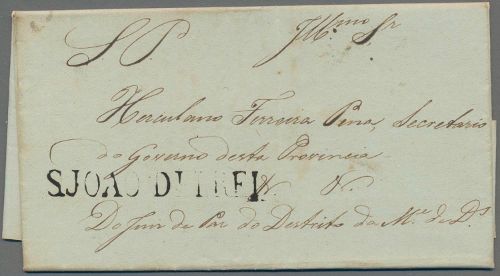 S. P. Ill.mo Sr
Herculano Ferreira Pena, Secretario
do Governo desta Provincia
S.JOAO DEL REI & &.
Do Juiz de Paz do Destricto da M.e de D.s